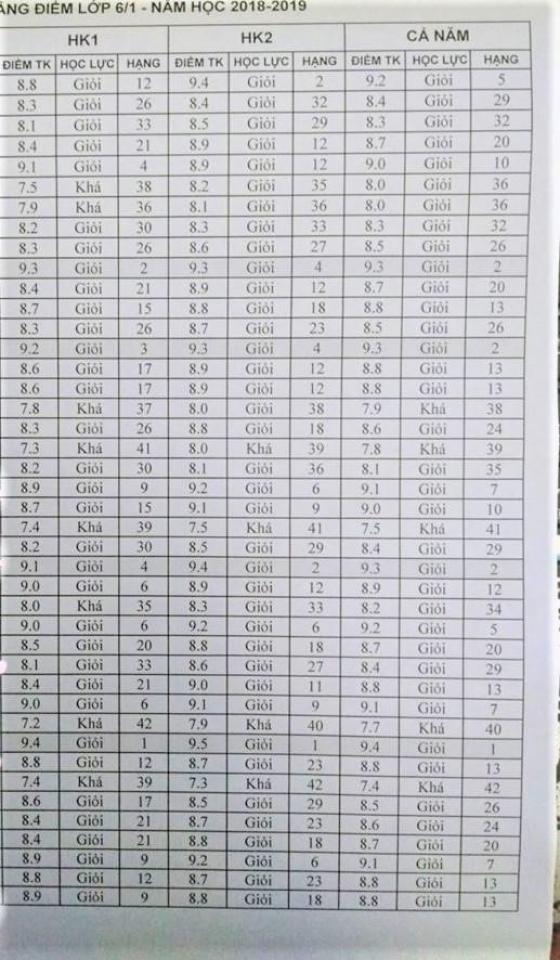 ẢNG ĐIỂM LỚP 6/1 - NĂM HỌC 2018-2019
HK1 HK2 CẢ NĂM
ĐIỂM TK HỌC LỰC HẠNG ĐIỂM TK HỌC LỰC HẠNG ĐIỂM TK HỌC LỰC HẠNG
8.8 Giỏi 12 9.4 Giỏi 2 9.2 Giỏi 5
8.3 Giỏi 26 8.4 Giỏi 32 8.4 Giỏi 29
8.1 Giỏi 33 8.5 Giỏi 29 8.3 Giỏi 32
8.4 Giỏi 21 8.9 Giỏi 12 8.7 Giỏi 20
9.1 Giỏi 4 8.9 Giỏi 12 9.0 Giỏi 10
7.5 Khá 38 8.2 Giỏi 35 8.0 Giỏi 36
7.9 Khá 36 8.1 Giỏi 36 8.0 Giỏi 36
8.2 Giỏi 30 8.3 Giỏi 33 8.3 Giỏi 32
8.3 Giỏi 26 8.6 Giỏi 27 8.5 Giỏi 26
9.3 Giỏi 2 9.3 Giỏi 4 9.3 Giỏi 2
8.4 Giỏi 21 8.9 Giỏi 12 8.7 Giỏi 20
8.7 Giỏi 15 8.8 Giỏi 18 8.8 Giỏi 13
8.3 Giỏi 26 8.7 Giỏi 23 8.5 Giỏi 26
9.2 Giỏi 3 9.3 Giỏi 4 9.3 Giỏi 2
8.6 Giỏi 17 8.9 Giỏi 12 8.8 Giỏi 13
8.6 Giỏi 17 8.9 Giỏi 12 8.8 Giỏi 13
7.8 Khá 37 8.0 Giỏi 38 7.9 Khá 38
8.3 Giỏi 26 8.8 Giỏi 18 8.6 Giỏi 24
7.3 Khá 41 8.0 Khá 39 7.8 Khá 39
8.2 Giỏi 30 8.1 Giỏi 36 8.1 Giỏi 35
8.9 Giỏi 9 9.2 Giỏi 6 9.1 Giỏi 7
8.7 Giỏi 15 9.1 Giỏi 9 9.0 Giỏi 10
7.4 Khá 39 7.5 Khá 41 7.5 Khá 41
8.2 Giỏi 30 8.5 Giỏi 29 8.4 Giỏi 29
9.1 Giỏi 4 9.4 Giỏi 2 9.3 Giỏi 2
9.0 Giỏi 6 8.9 Giỏi 12 8.9 Giỏi 12
8.0 Khá 35 8.3 Giỏi 33 8.2 Giỏi 34
9.0 Giỏi 6 9.2 Giỏi 6 9.2 Giỏi 5
8.5 Giỏi 20 8.8 Giỏi 18 8.7 Giỏi 20
8.1 Giỏi 33 8.6 Giỏi 27 8.4 Giỏi 29
8.4 Giỏi 21 9.0 Giỏi 11 8.8 Giỏi 13
9.0 Giỏi 6 9.1 Giỏi 9 9.1 Giỏi 7
7.2 Khá 42 7.9 Khá 40 7.7 Khá 40
9.4 Giỏi 1 9.5 Giỏi 1 9.4 Giỏi 1
8.8 Giỏi 12 8.7 Giỏi 23 8.8 Giỏi 13
7.4 Khá 39 7.3 Khá 42 7.4 Khá 42
8.6 Giỏi 17 8.5 Giỏi 29 8.5 Giỏi 26
8.4 Giỏi 21 8.7 Giỏi 23 8.6 Giỏi 24
8.4 Giỏi 21 8.8 Giỏi 18 8.7 Giỏi 20
8.9 Giỏi 9 9.2 Giỏi 6 9.1 Giỏi 7
8.8 Giỏi 12 8.7 Giỏi 23 8.8 Giỏi 13
8.9 Giỏi 9 8.8 Giỏi 18 8.8 Giỏi 13